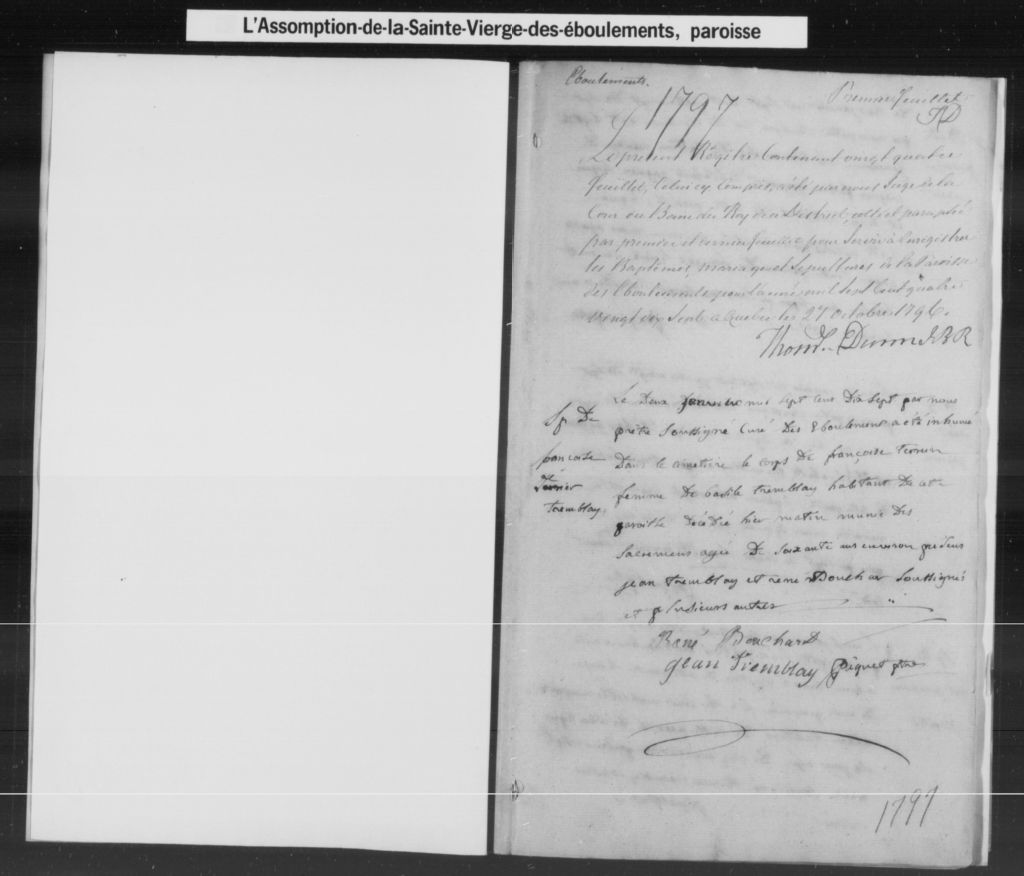 L'Assomption-de-la-Sainte-Vierge-des-éboulements, paroisse
Eboulements.
1797
Premier feuillet
TD
Le present Régitre Contenant vingt quatre
feuillet, Celui cy Compris, a été par nous Juge de la
Cour du Banc du Roy de ce District, cotté et paraphé
par premier et dernier feuillet pour Servir à Enregistrer
les Baptêmes, mariages et Sepultures de la Paroisse
des Eboulements pour l'année mil Sept Cent quatre
vingt dix Sept a Quebec le 27 octobre 1796.
Thos. Dunn J.B.R
Sp De
francoise
tremblay
Le Deux janvier mil sept cent Dix Sept par nous
prêtre Soussigné Curé Des Eboulemens a été inhumé
Dans le cimetiere le corps De françoise
femme De basile tremblay habitant De cette
paroisse Décédée hier matin munie Des
Sacremens agée De Soixante ans environ présens
jean tremblay et rené Bouchar Soussignés
et plusieurs autres
René Bouchard
jean Tremblay Piquet ptre
1797